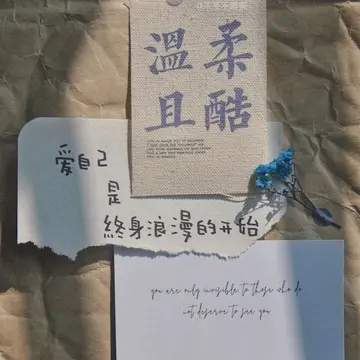 溫柔
且酷
爱自己
是
終身浪漫的开始
you are only invisible to those who do
not deserve to see you